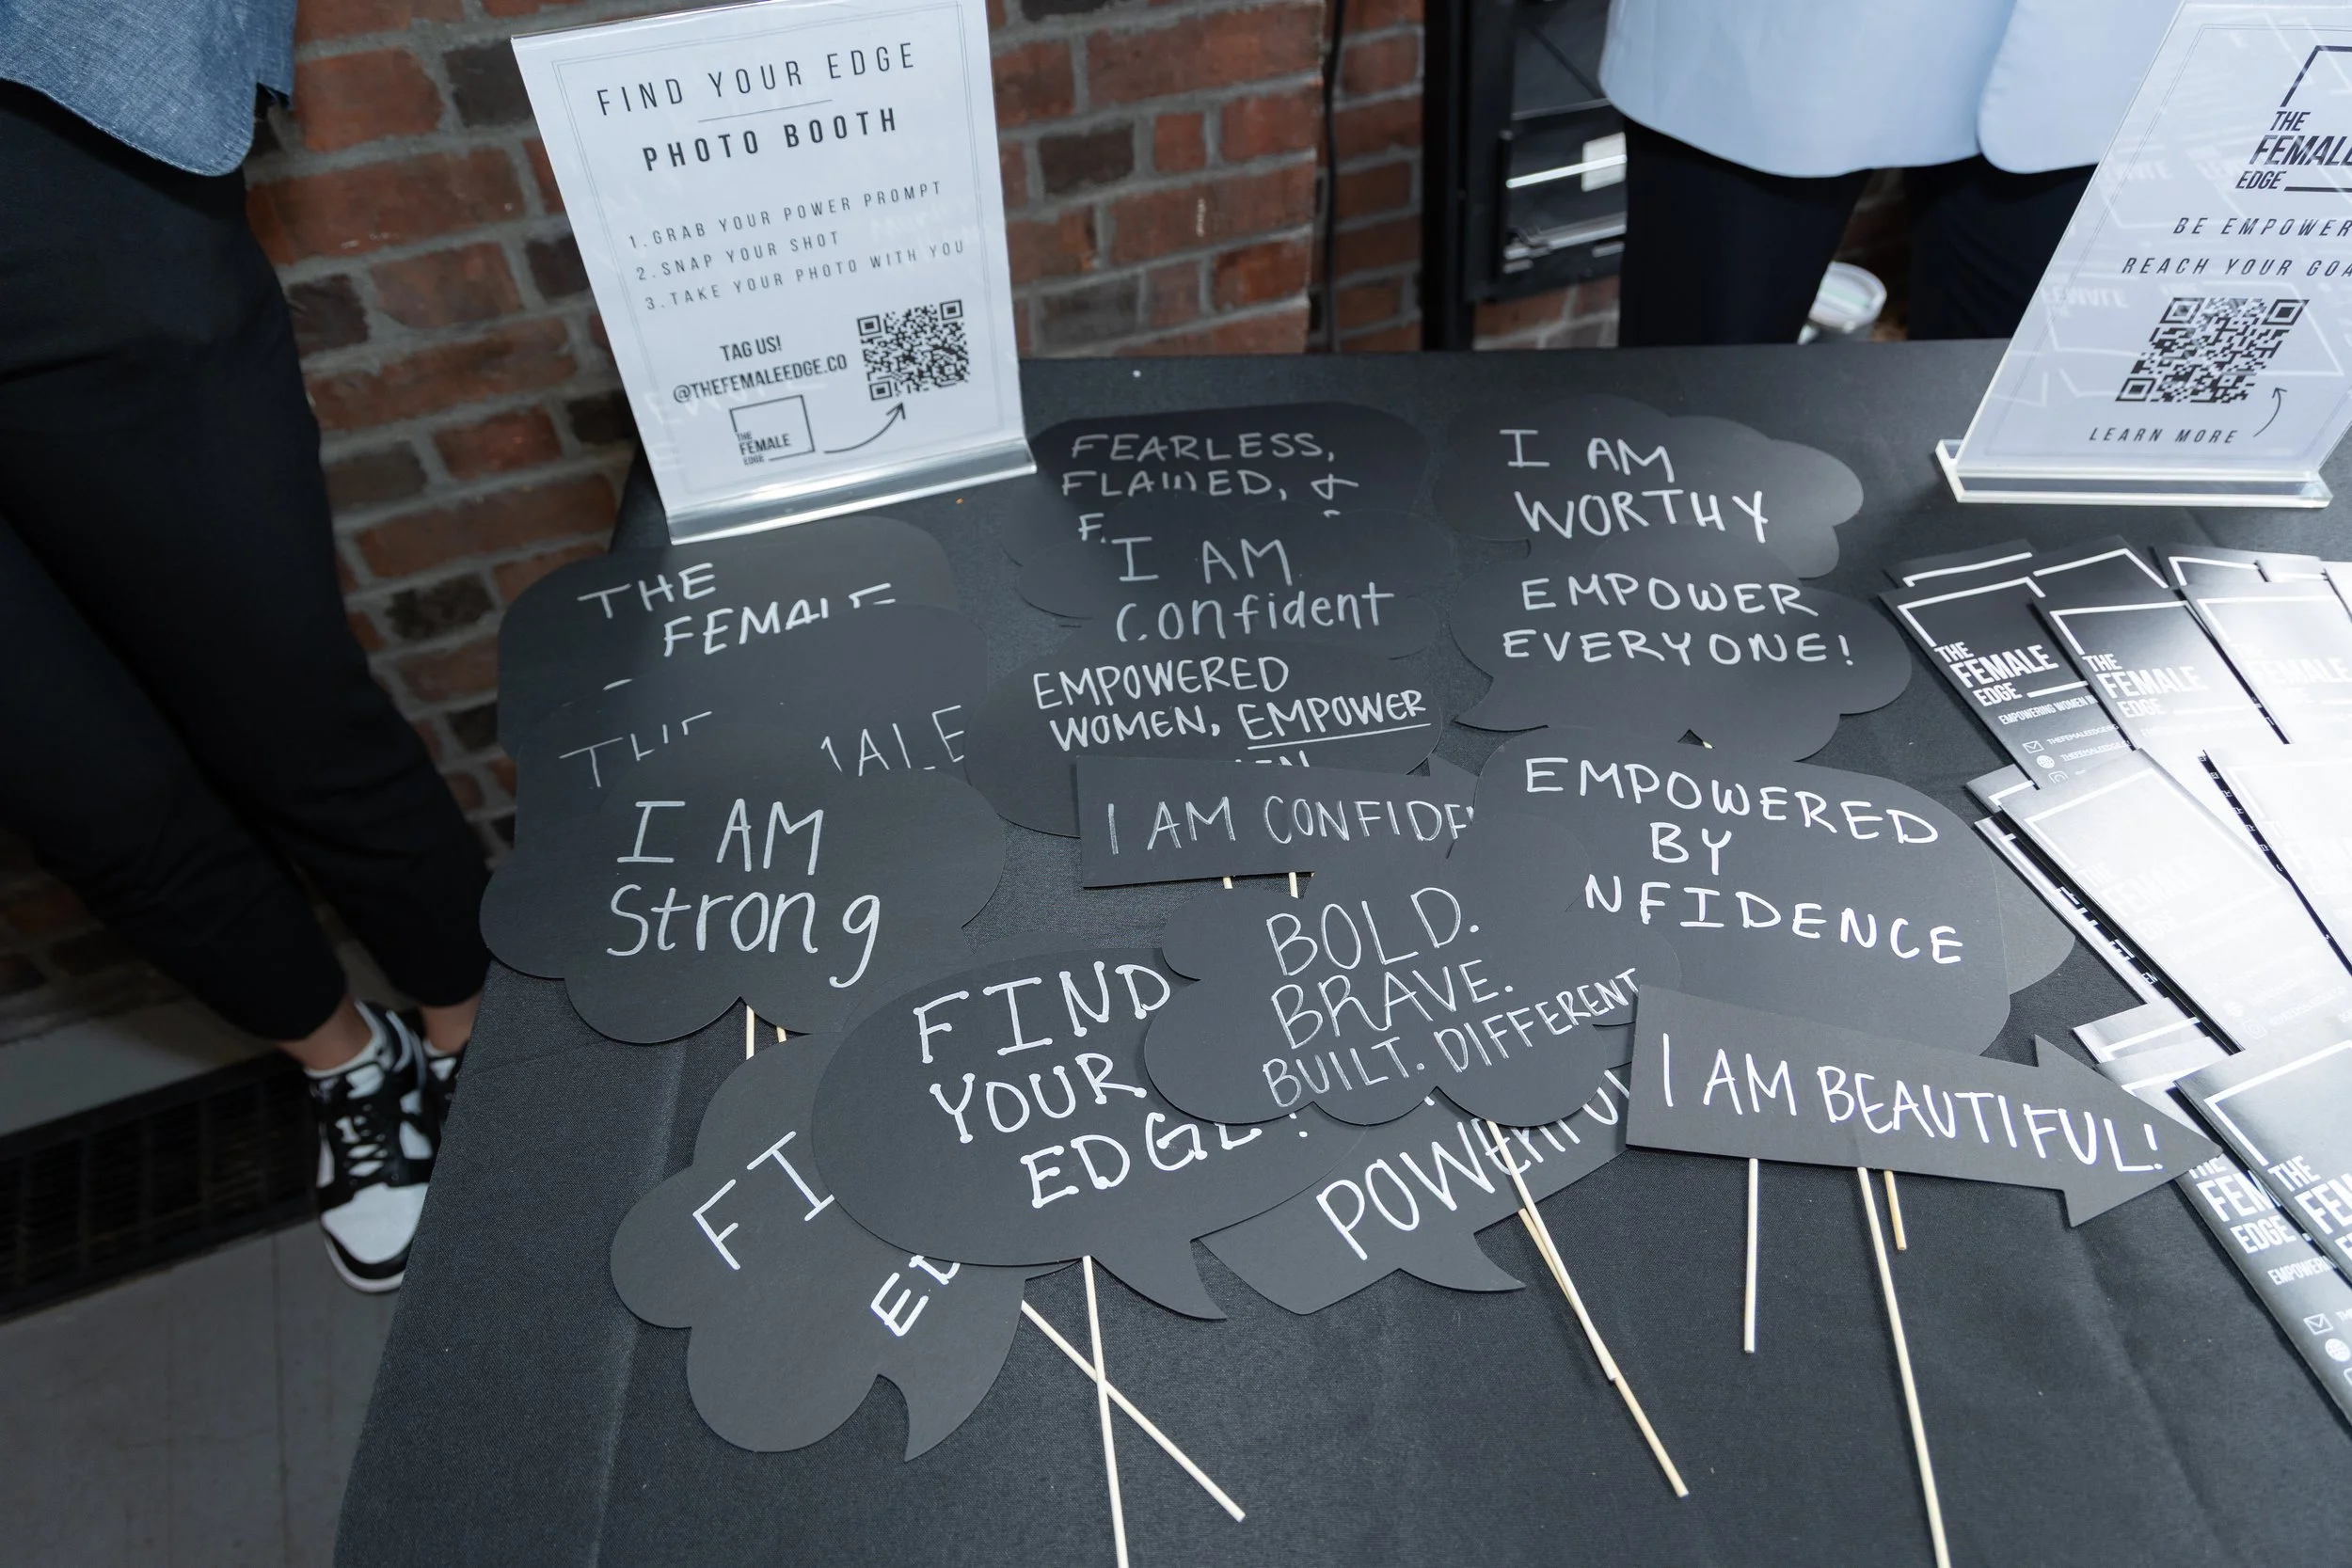 FIND YOUR EDGE
PHOTO BOOTH
1. GRAB YOUR POWER PROMPT
2. SNAP YOUR SHOT
3. TAKE YOUR PHOTO WITH YOU
TAG US!
@THEFEMALEEDGE.CO
THE
FEMALE
EDGE
THE
FEMALE
EDGE
BE
REACH YOUR
LEARN MORE
FEARLESS,
FLAWED, &
I AM
WORTHY
I AM
Confident
EMPOWER
EVERYONE!
THE
FEMALE
EMPOWERED
WOMEN, EMPOWER
I AM
Strong
I AM
EMPOWERED
BY
BOLD.
BRAVE.
BUILT. DIFFERENT
FIND
YOUR
EDGE!
I AM BEAUTIFUL!
POWERFUL
THE
FEMALE
EDGE
EMPOWERING WOMEN
THE
FEMALE
EDGE
THE
EDGE
THE